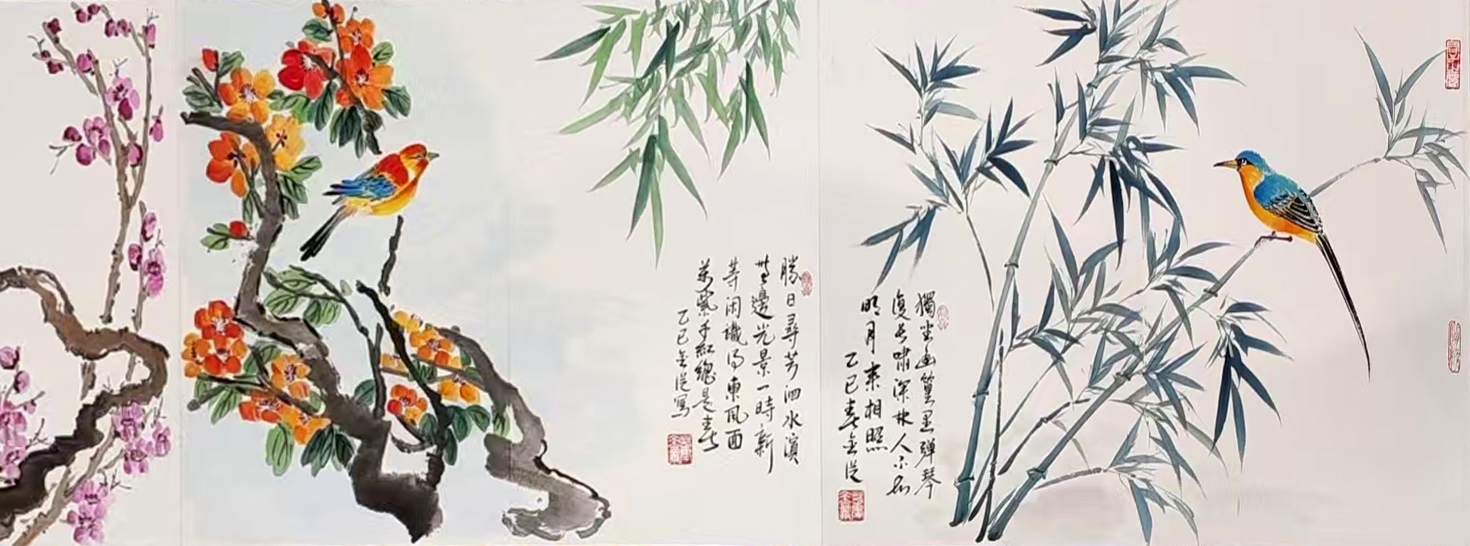 勝日尋芳泗水濱
無邊光景一時新
等闲識得東風面
萬紫千紅總是春
乙巳
寫
獨坐幽篁里彈琴
復長嘯深林人不知
明月来相照
乙巳春